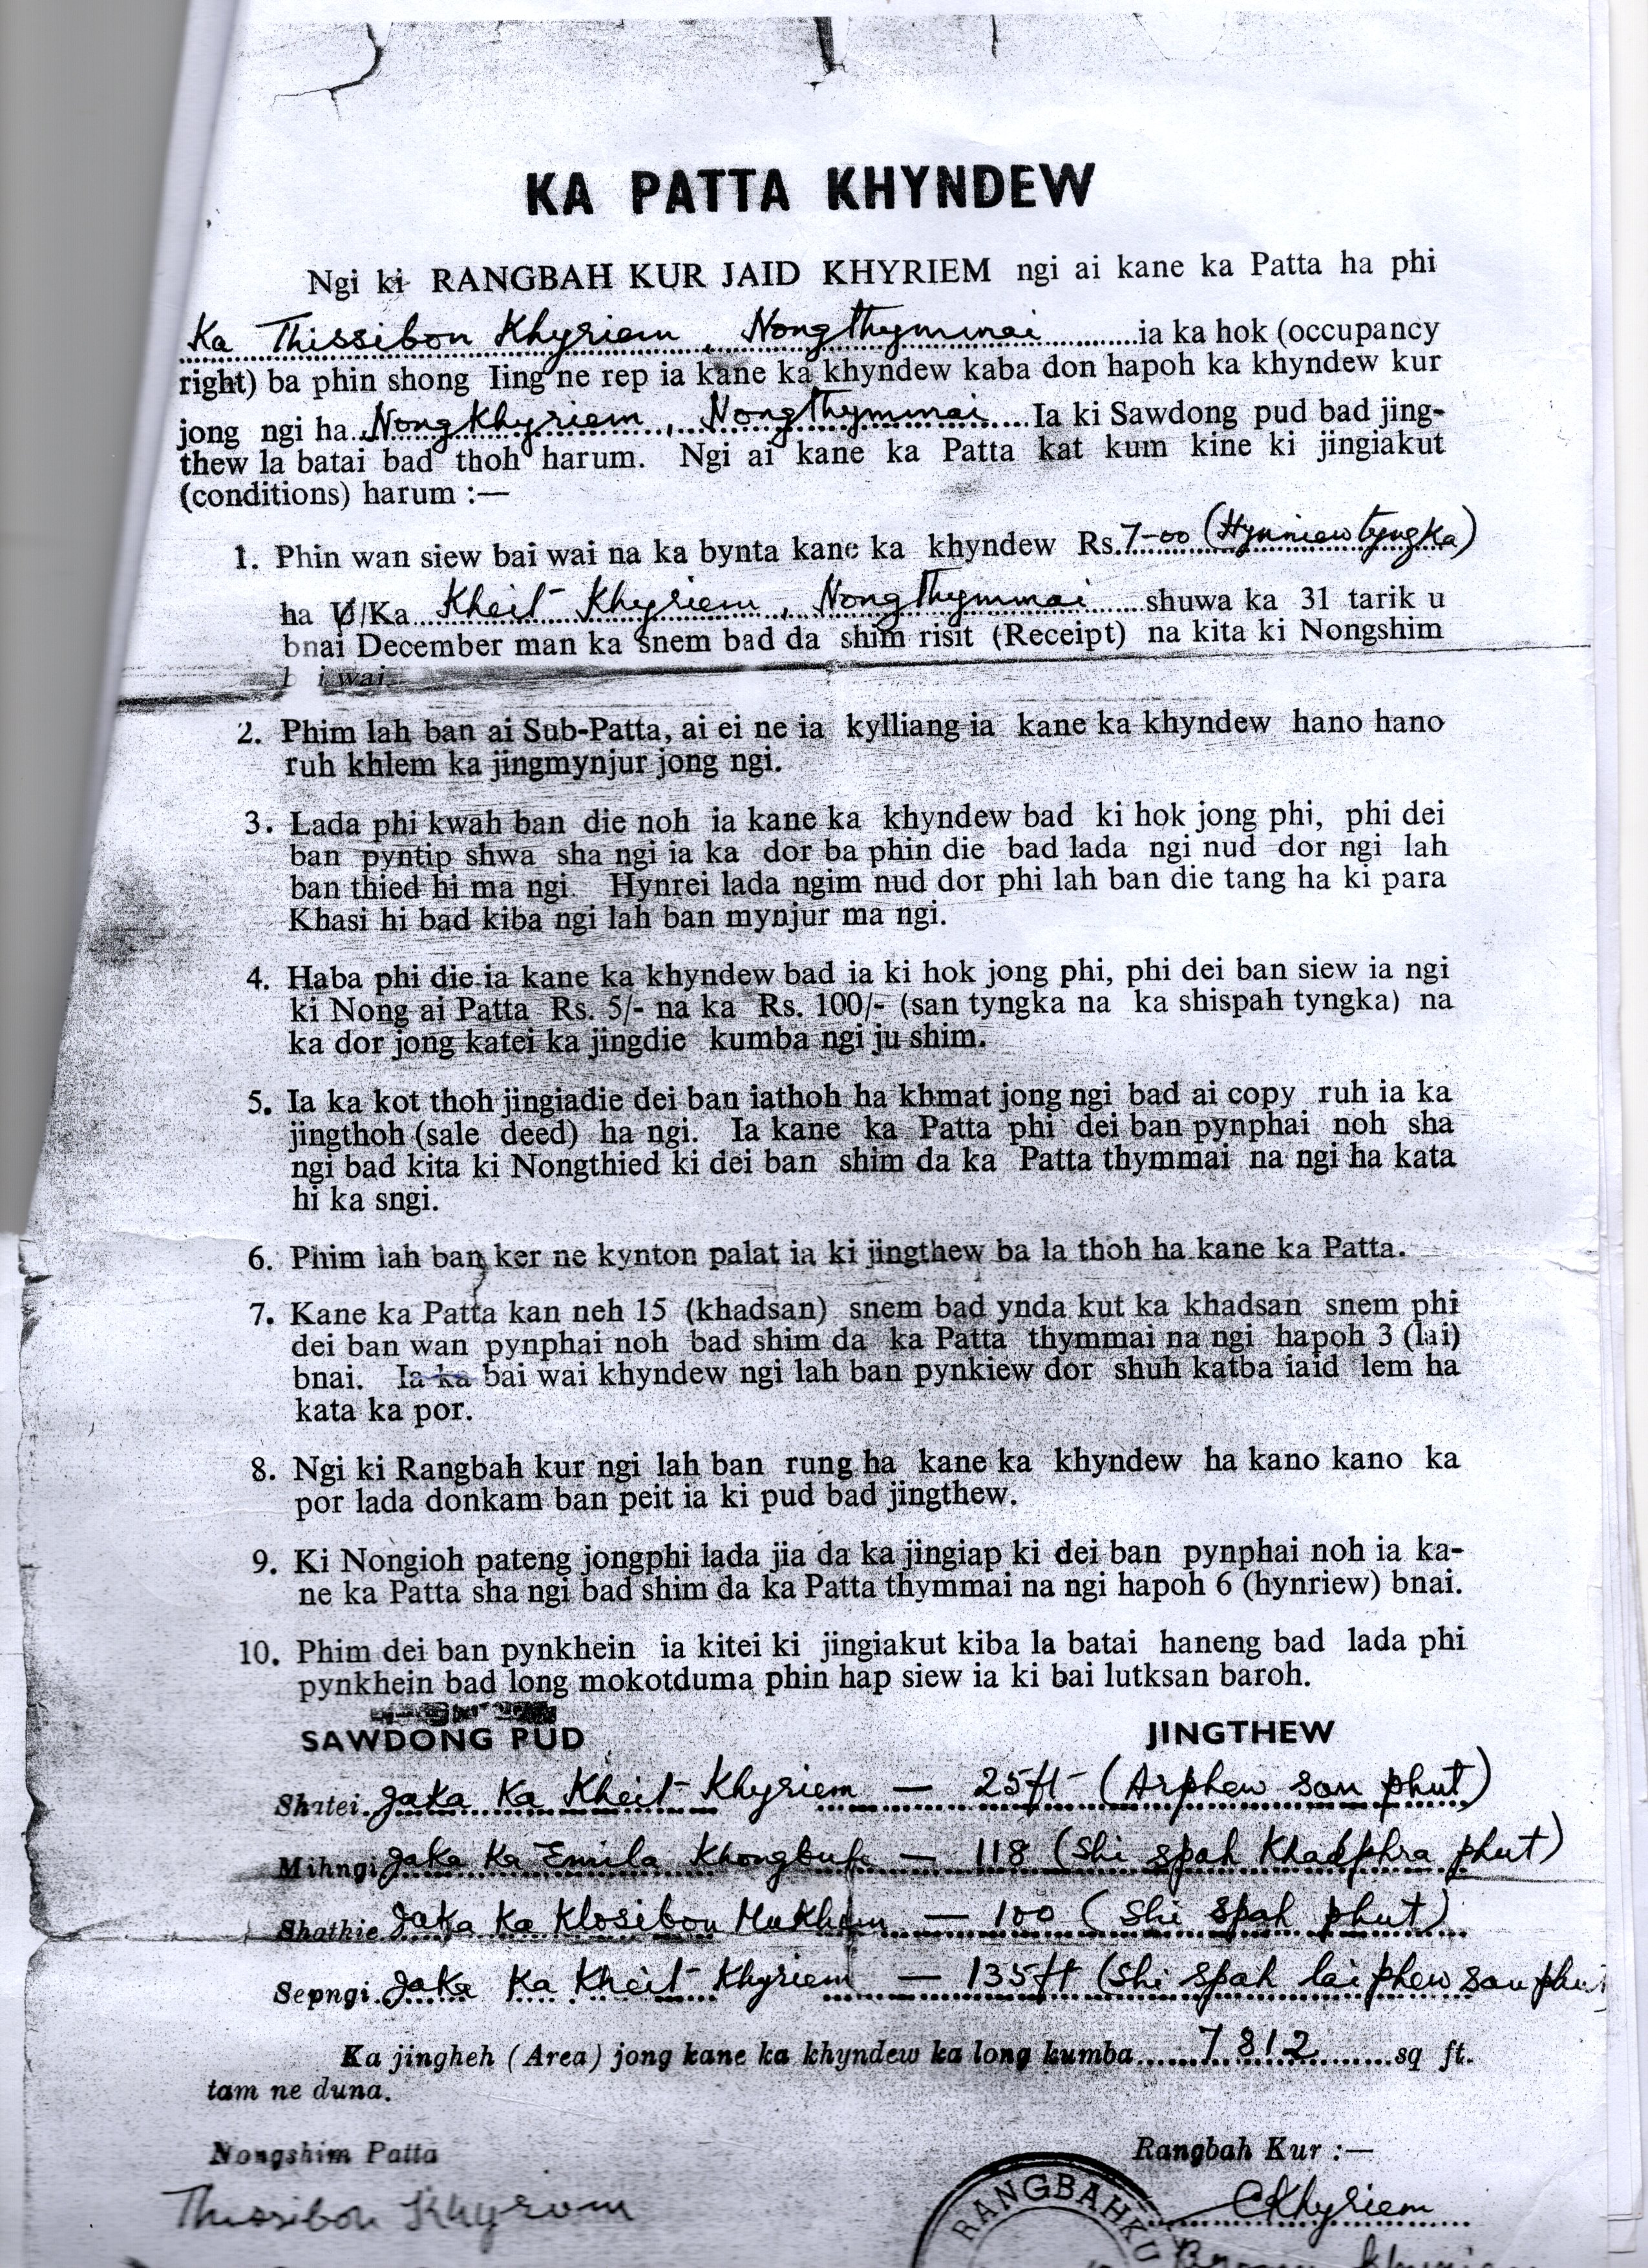 KA PATTA KHYNDEW
Ngi ki RANGBAH KUR JAID KHYRIEM ngi ai kane ka Patta ha phi
Ka Thissibon Khyriem, Nongthymmai ia ka hok (occupancy
right) ba phin shong Iing ne rep ia kane ka khyndew kaba don hapoh ka khyndew kur
jong ngi ha Nongkhyriem, Nongthymmai Ia ki Sawdong pud bad jing-
thew la batai bad thoh harum. Ngi ai kane ka Patta kat kum kine ki jingiakut
(conditions) harum :—
1. Phin wan siew bai wai na ka bynta kane ka khyndew Rs. 7-00 (Hynniew tyngka)
ha U/Ka Kheit Khyriem, Nongthymmai shuwa ka 31 tarik u
bnai December man ka snem bad da shim risit (Receipt) na kita ki Nongshim
wai.
2. Phim lah ban ai Sub-Patta, ai ei ne ia kylliang ia kane ka khyndew hano hano
ruh khlem ka jingmynjur jong ngi.
3. Lada phi kwah ban die noh ia kane ka khyndew bad ki hok jong phi, phi dei
ban pyntip shwa sha ngi ia ka dor ba phin die bad lada ngi nud dor ngi lah
ban thied hi ma ngi. Hynrei lada ngim nud dor phi lah ban die tang ha ki para
Khasi hi bad kiba ngi lah ban mynjur ma ngi.
4. Haba phi die ia kane ka khyndew bad ia ki hok jong phi, phi dei ban siew ia ngi
ki Nong ai Patta Rs. 5/- na ka Rs. 100/- (san tyngka na ka shispah tyngka) na
ka dor jong katei ka jingdie kumba ngi ju shim.
5. Ia ka kot thoh jingiadie dei ban iathoh ha khmat jong ngi bad ai copy ruh ia ka
jingthoh (sale deed) ha ngi. Ia kane ka Patta phi dei ban pynphai noh sha
ngi bad kita ki Nongthied ki dei ban shim da ka Patta thymmai na ngi ha kata
hi ka sngi.
6. Phim lah ban ker ne kynton palat ia ki jingthew ba la thoh ha kane ka Patta.
7. Kane ka Patta kan neh 15 (khadsan) snem bad ynda kut ka khadsan snem phi
dei ban wan pynphai noh bad shim da ka Patta thymmai na ngi hapoh 3 (lai)
bnai. Ia ka bai wai khyndew ngi lah ban pynkiew dor shuh katba iaid lem ha
kata ka por.
8. Ngi ki Rangbah kur ngi lah ban rung ha kane ka khyndew ha kano kano ka
por lada donkam ban peit ia ki pud bad jingthew.
9. Ki Nongioh pateng jongphi lada jia da ka jingiap ki dei ban pynphai noh ia ka-
ne ka Patta sha ngi bad shim da ka Patta thymmai na ngi hapoh 6 (hynriew) bnai.
10. Phim dei ban pynkhein ia kitei ki jingiakut kiba la batai haneng bad lada phi
pynkhein bad long mokotduma phin hap siew ia ki bai lutksan baroh.
SAWDONG PUD JINGTHEW
Shatei Jaka Ka Kheit Khyriem — 25ft (Arphew san phut)
Mihngi Jaka Ka Emila — 118 (Shi spah Khadphra phut)
Shathie Jaka Ka Klosibon Mukhim — 100 (Shi spah phut)
Sepngi Jaka Ka Kheit Khyriem — 135ft (Shi spah lai phew san phut
Ka jingheh (Area) jong kane ka khyndew ka long kumba 7812 sq ft.
tam ne duna.
Nongshim Patta Rangbah Kur :—
Thissibon Khyriem CKhyriem
RANGBAH KU